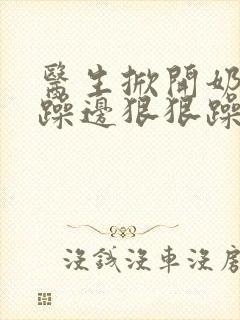 醫生掀開奶
躁邊狠狠躁
沒錢沒車沒房